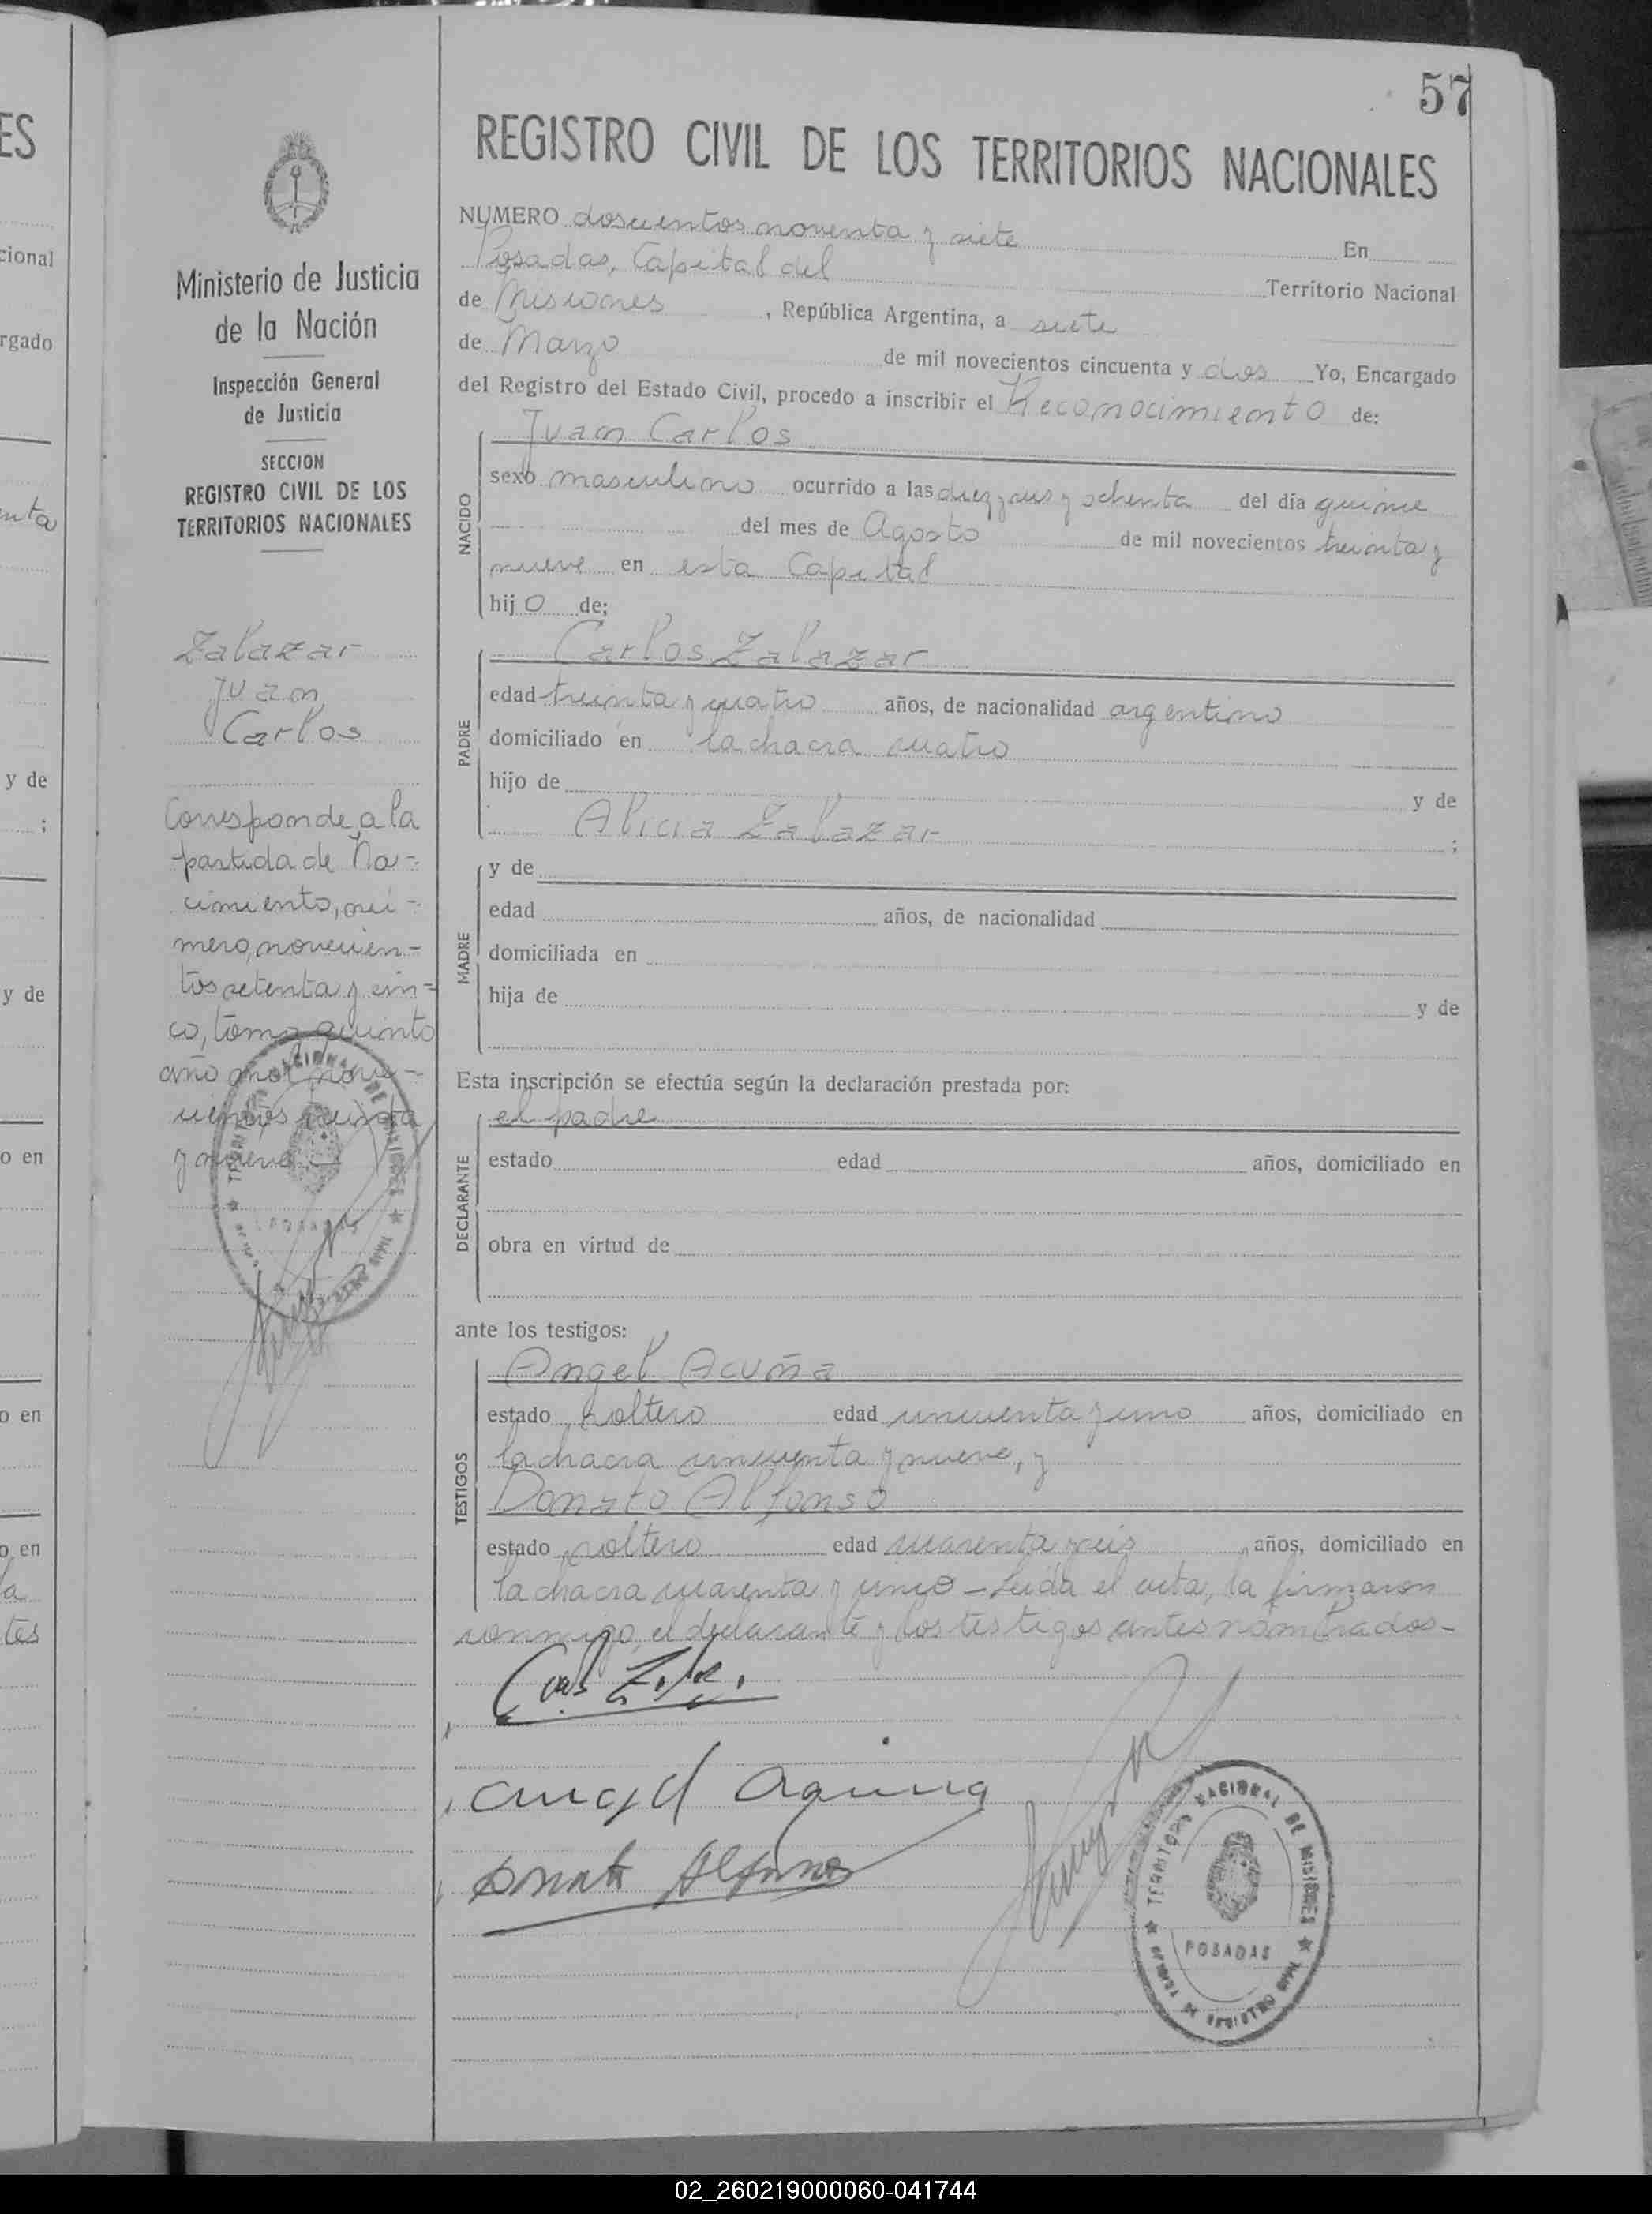 57
REGISTRO CIVIL DE LOS TERRITORIOS NACIONALES
NUMERO doscientos noventa y siete En
Posadas, Capital del Territorio Nacional
de Misiones, República Argentina, a siete
de Marzo de mil novecientos cincuenta y dos Yo, Encargado
del Registro del Estado Civil, procedo a inscribir el Reconocimiento de:
NACIDO
Juan Carlos
sexo masculino ocurrido a las diez y seis y ochenta del día quince
del mes de Agosto de mil novecientos treinta y
nueve en esta Capital
hijo de;
PADRE
Carlos Zalazar
edad treinta y cuatro años, de nacionalidad argentino
domiciliado en la chacra cuatro
hijo de y de
Alicia Zalazar ;
MADRE
y de
edad años, de nacionalidad
domiciliada en
hija de y de
Esta inscripción se efectúa según la declaración prestada por:
DECLARANTE
el padre
estado edad años, domiciliado en
obra en virtud de
ante los testigos:
TESTIGOS
Angel Acuña
estado soltero edad cincuenta y uno años, domiciliado en
la chacra cincuenta y nueve, y
Donato Alfonso
estado soltero edad cuarenta y seis años, domiciliado en
la chacra cuarenta y cinco - Leída el acta, la firmaron
conmigo, el declarante y los testigos antes nombrados-
Donato Alfonso
TERRITORIO NACIONAL DE MISIONES
POSADAS
Ministerio de Justicia
de la Nación
Inspección General
de Justicia
SECCION
REGISTRO CIVIL DE LOS
TERRITORIOS NACIONALES
Zalazar
Juan
Carlos
Corresponde a la
partida de Na-
cimiento, nú-
mero, novecien-
tos setenta y cin-
co, tomo quinto
año mil nove-
cientos treinta
y nueve
ES
cional
rgado
nta
y de
;
y de
o en
o en
o en
la
tes
02_260219000060-041744